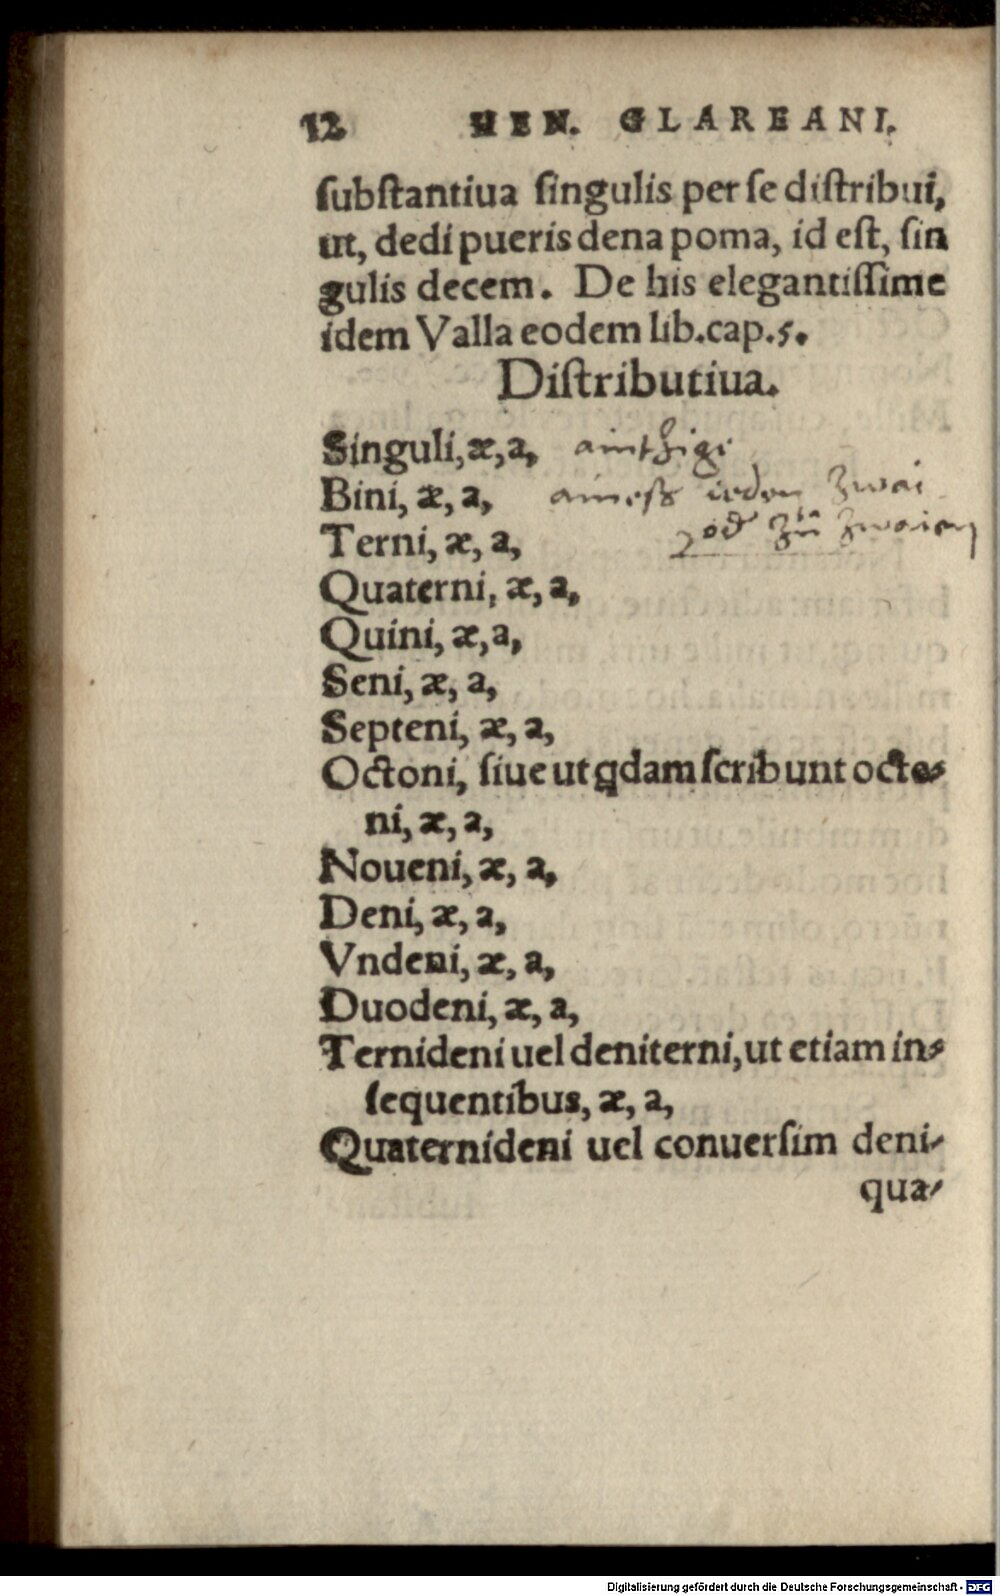 12 HEN. GLAREANI.
ſubſtantiua ſingulis per ſe diſtribui,
ut, dedi pueris dena poma, id eſt, ſin
gulis decem. De his elegantiſſime
idem Valla eodem lib. cap. 5.
Diſtributiua.
Singuli, æ, a, ainthzige
Bini, æ, a, ainesz ieden zwai
od zwaien
Terni, æ, a,
Quaterni, æ, a,
Quini, æ, a,
Seni, æ, a,
Septeni, æ, a,
Octoni, ſiue ut q̃dam ſcribunt octe-
ni, æ, a,
Noueni, æ, a,
Deni, æ, a,
Vndeni, æ, a,
Duodeni, æ, a,
Ternideni uel deniterni, ut etiam in-
ſequentibus, æ, a,
Quaternideni uel conuerſim deni-
qua-
Digitalisierung gefördert durch die Deutsche Forschungsgemeinschaft - DFG